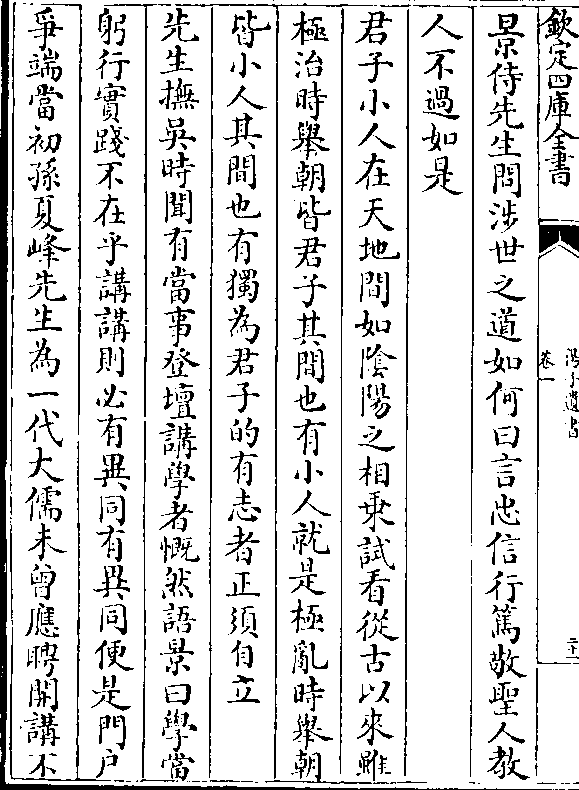 欽定四庫全書
湯子遺書
卷一
二十一
景侍先生問涉世之道如何曰言忠信行篤敬聖人教
人不過如是
君子小人在天地間如陰陽之相乗試看從古以來雖
極治時舉朝皆君子其間也有小人就是極亂時舉朝
皆小人其間也有獨為君子的有志者正須自立
先生撫吳時聞有當事登壇講學者慨然語景曰學當
躬行實踐不在乎講講則必有異同有異同便是門户
爭端當初孫夏峰先生為一代大儒未曾應聘開講不